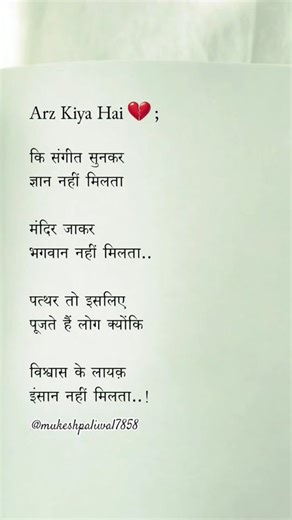 Arz Kiya Hai 💔 ;
कि संगीत सुनकर
ज्ञान नहीं मिलता
मंदिर जाकर
भगवान नहीं मिलता..
पत्थर तो इसलिए
पूजते हैं लोग क्योंकि
विश्वास के लायक़
इंसान नहीं मिलता..!
@mukeshpaliwal7858